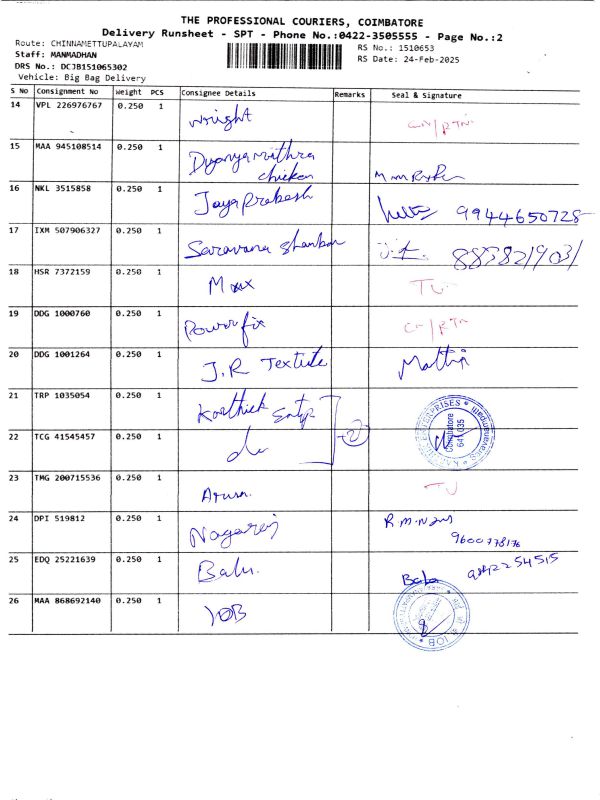 THE PROFESSIONAL COURIERS, COIMBATORE
Delivery Runsheet - SPT - Phone No.:0422-3505555 - Page No.:2
Route: CHINNAMETTUPALAYAM
Staff: MANMADHAN
DRS No.: DCJB151065302
Vehicle: Big Bag Delivery
RS No.: 1510653
RS Date: 24-Feb-2025
S No Consignment No Weight PCS Consignee Details Remarks Seal & Signature
14 VPL 226976767 0.250 1 Wright
15 MAA 945108514 0.250 1 chicken
16 NKL 3515858 0.250 1 Jayaprakash 9944650728
17 IXM 507906327 0.250 1 Saravana Shankar
18 HSR 7372159 0.250 1 Max
19 DDG 1000760 0.250 1 Powerfix
20 DDG 1001264 0.250 1 J.R Textile
21 TRP 1035054 0.250 1 Karthick Entp
22 TCG 41545457 0.250 1 do 2
KARTHICK ENTERPRISES Coimbatore 641 035 Saravanampatti
23 TMG 200715536 0.250 1
24 DPI 519812 0.250 1 Nagaraj
25 EDQ 25221639 0.250 1 Balu.
26 MAA 868692140 0.250 1 IOB
IOB